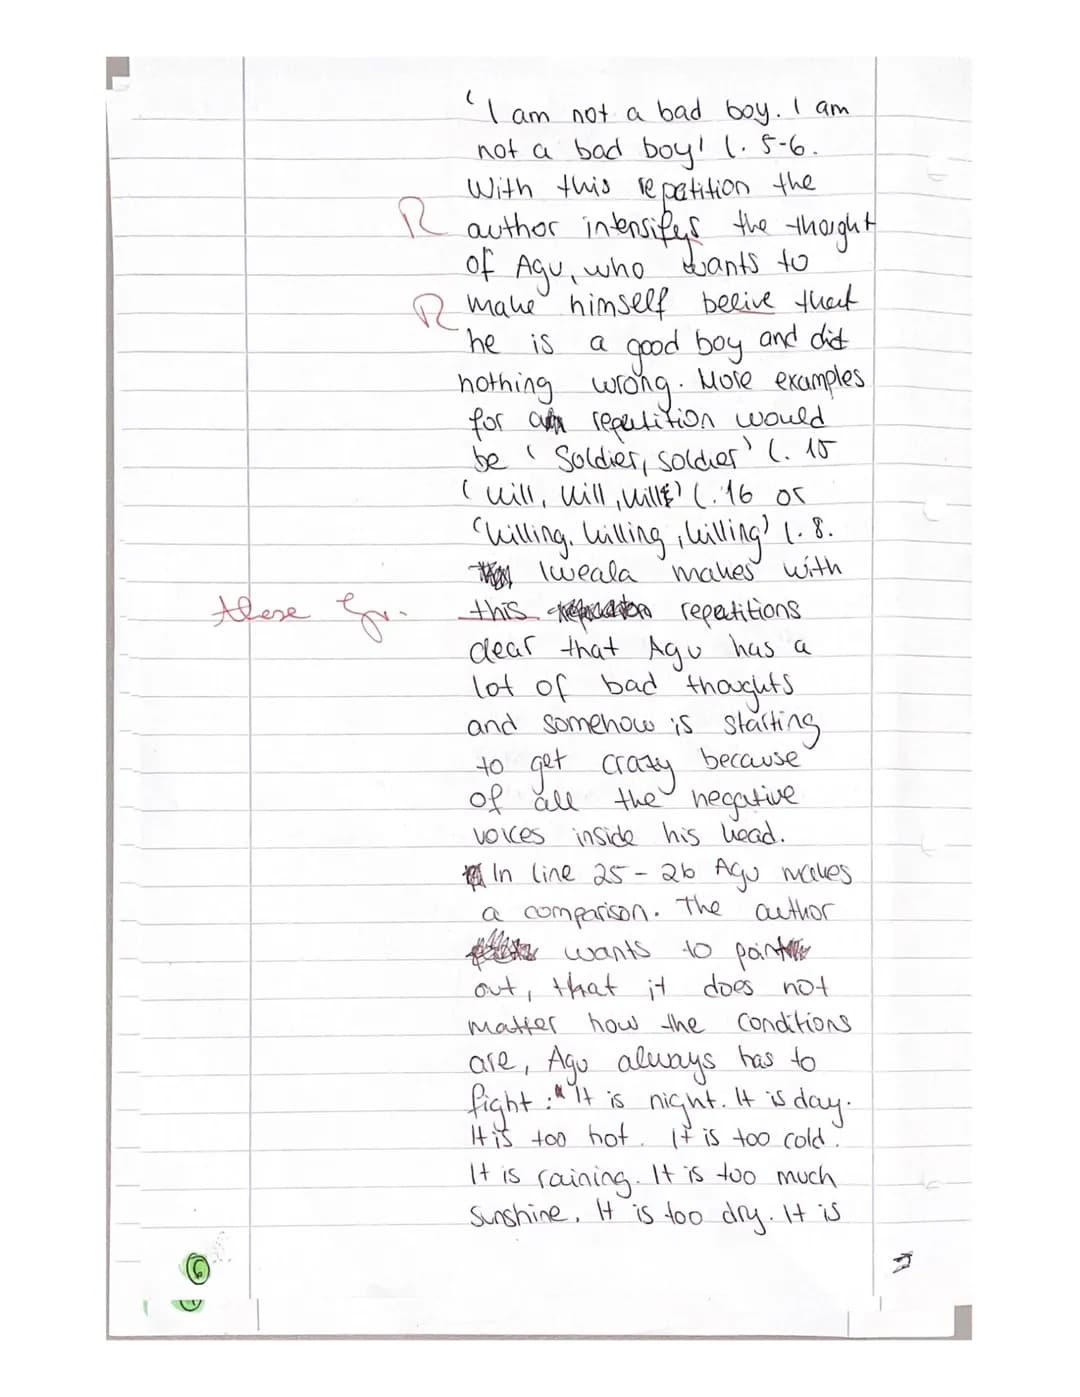 ' I am not a bad boy. I am
not a bad boy' l. 5-6.
With this repatition the
R author intensifys the thought
of Agu, who wants to
R make himself belive that
he is a good boy and did
nothing wrong. More examples
for repetition would
be ' Soldier, soldier' l. 15
' kill, kill, kill' l. 16 or
'killing, killing, killing' l. 8.
Iweala makes with
these Gr. this repetitions
clear that Agu has a
lot of bad thoughts
and somehow is starting
to get crazy because
of all the negative
voices inside his head.
In line 25 - 26 Agu makes
a comparison. The author
wants to point
out, that it does not
matter how the conditions
are, Agu always has to
fight : " It is night. It is day.
It is too hot. It is too cold.
It is raining. It is too much
sunshine. It is too dry. It is
6